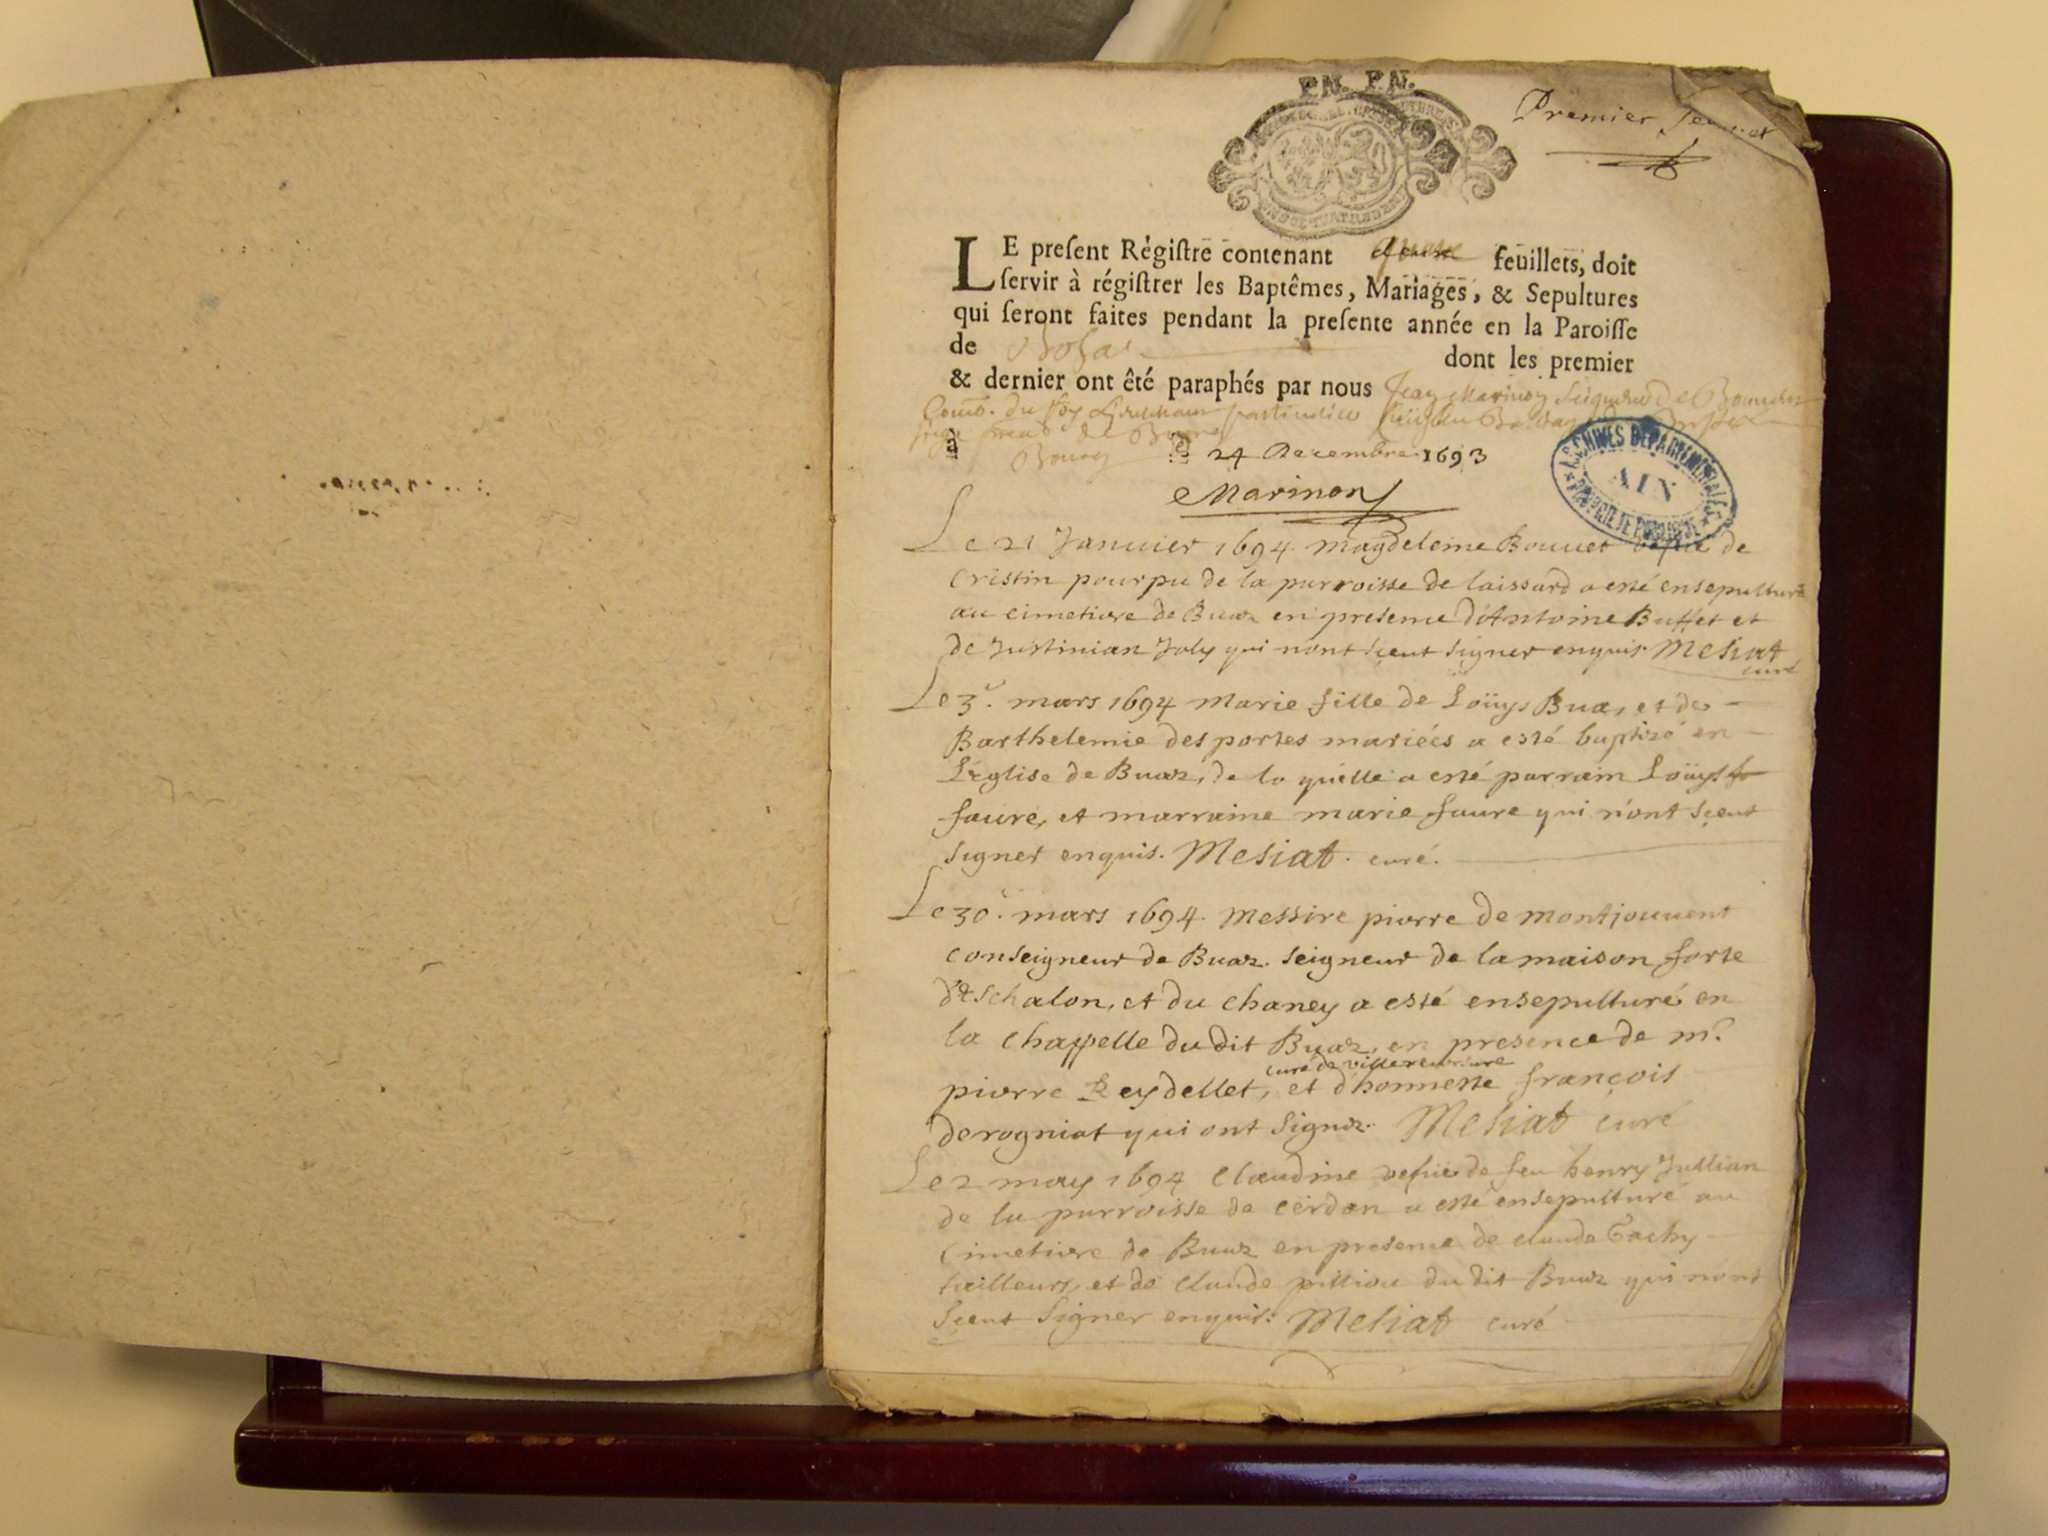 P.N. P.N.
Premier
LE preſent Régiſtre contenant feuillets, doit
ſervir à régiſtrer les Baptêmes, Mariages, & Sepultures
qui ſeront faites pendant la preſente année en la Paroiſſe
de dont les premier
& dernier ont êté paraphés par nous Jean Marinon Seigneur de
à le 24 Decembre 1693
Marinon
ARCHIVES DEPARTEMENTALES
AIN
Le 21 Janvier 1694 Magdeleine Bouvet de
cristin pourpu de la parroisse de laissard a esté ensepulturé
au cimetiere de Buaz en presence d'Antoine Buffet et
de Justinian Joly qui n'ont sçeut signer enquis Mesiat
curé
Le 3e. mars 1694 Marie fille de Loüys Buaz, et de
Barthelemie desportes mariées a esté baptizé en
L'eglise de Buaz, de la quelle a esté parrain Loüys
faure, et marraine marie faure qui n'ont sçeut
signer enquis. Mesiat. curé.
Le 30e. mars 1694. Messire pierre de montjouuent
conseigneur de Buaz. seigneur de la maison forte
d'Eschalon, et du chaney a esté ensepulturé en
la chappelle du dit Buaz, en presence de mr.
curé de villereversure
pierre Reydellet, et d'honneste françois
derogniat qui ont signez. Mesiat curé
Le 2 may 1694 Claudine vefüe de feu henry Jullian
de la parroisse de cerdon a esté ensepulturé au
cimetiere de Buaz en presence de claude Tachy
tailleurs, et de Claude pilliou du dit Buaz qui n'ont
sçeut signer enquis. Mesiat curé